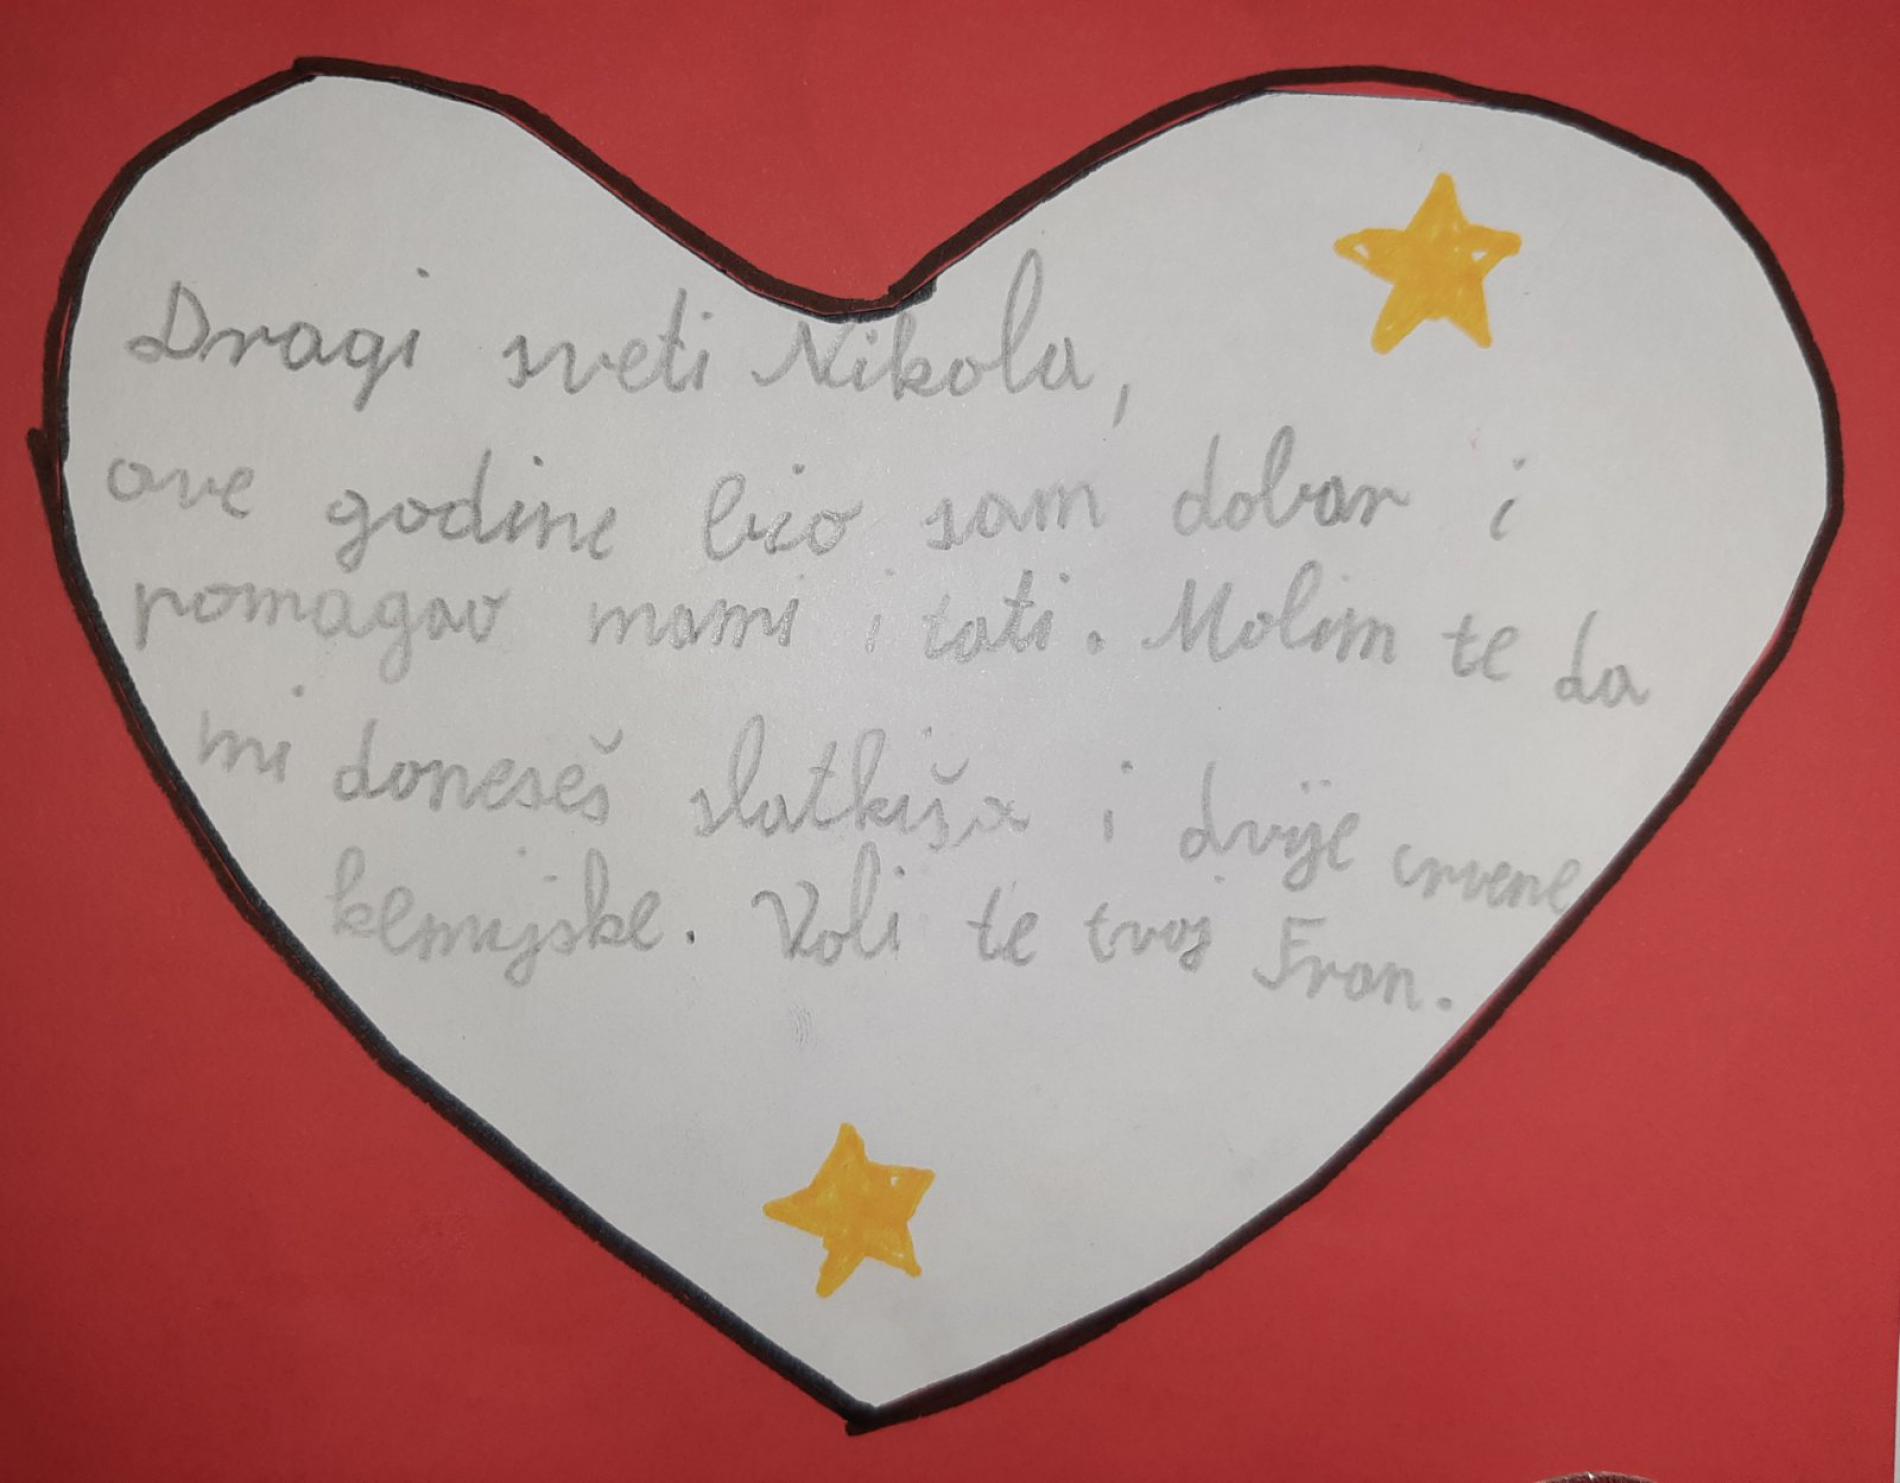 Dragi sveti Nikola,
ove godine bio sam dobar i
pomagao mami i tati. Molim te da
mi doneseš slatkiša i dvije crvene
kemijske. Voli te tvoj Fran.